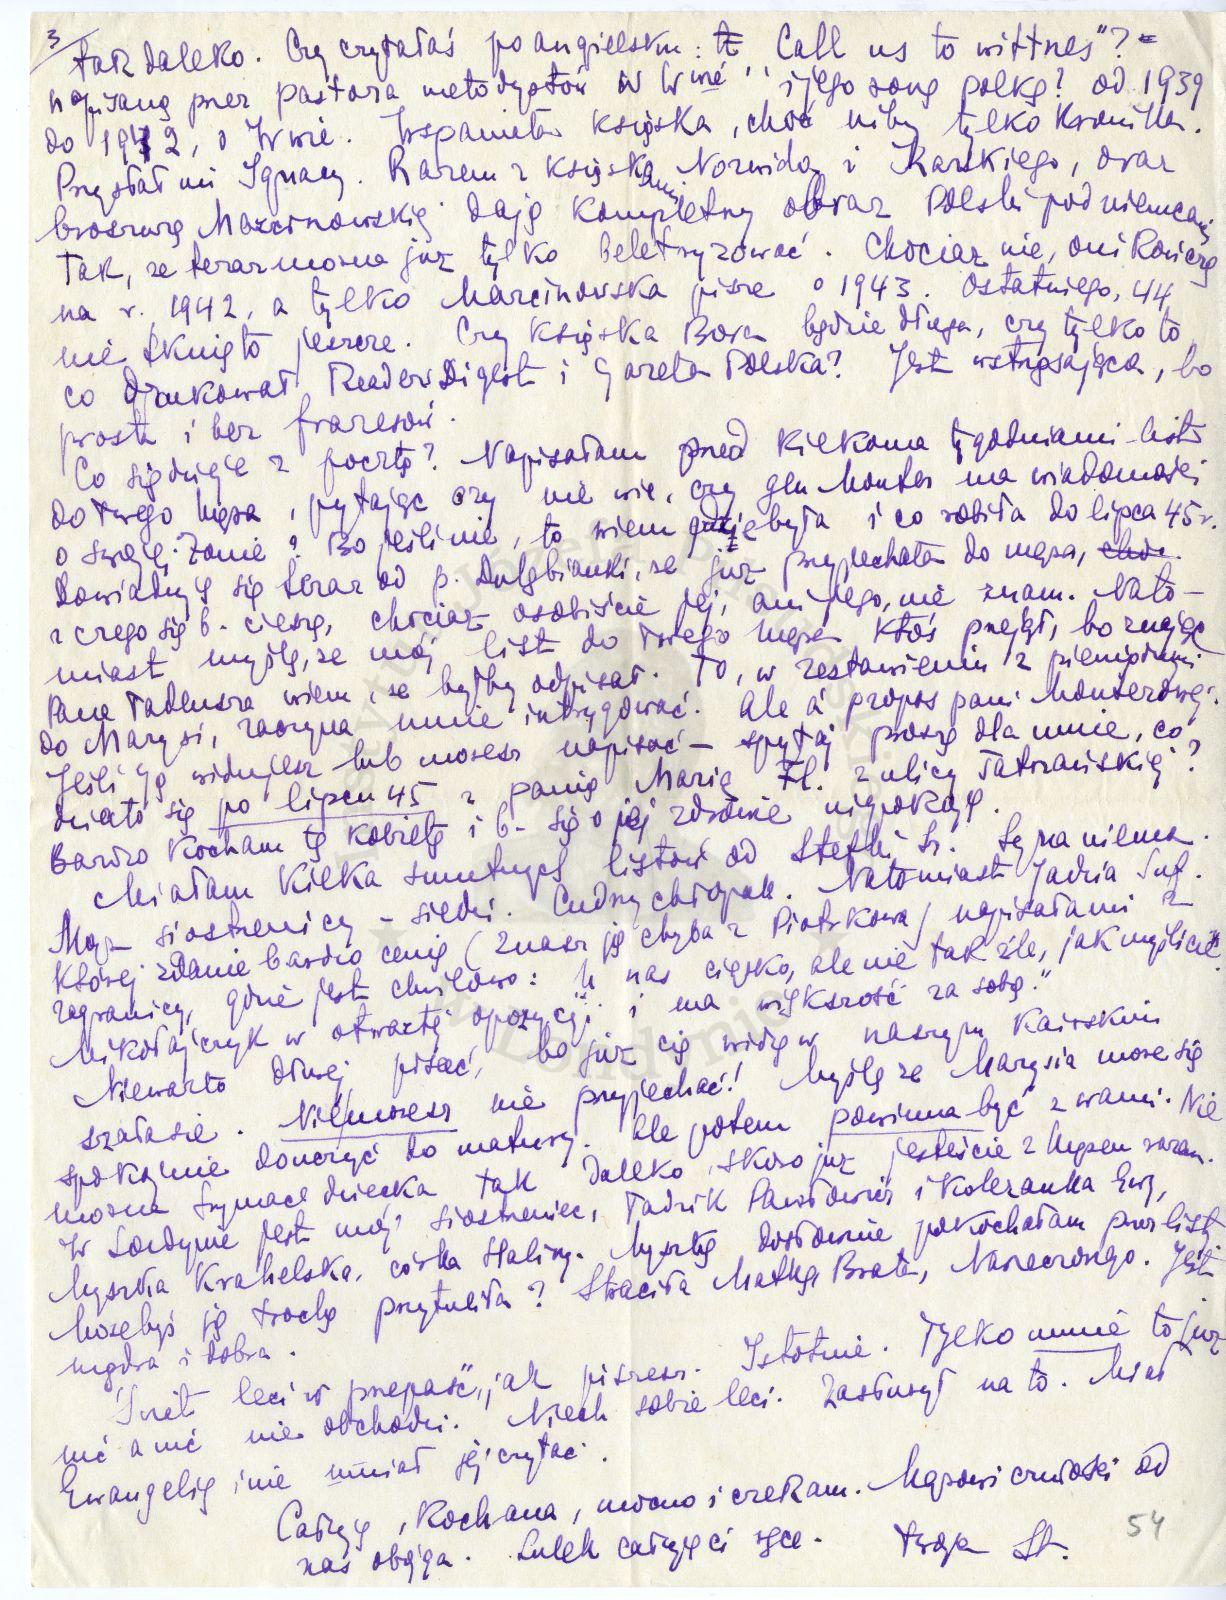 3
tak daleko. Czy czytałaś po angielsku: "Call us to wittnes"?
napisaną przez pastora metodystów w Lwie" i jego żonę polkę? od 1939
do 1942, o Lwie. Wspaniała książka, choć niby tylko Kronika.
Przysłał mi Ignacy. Razem z książkami Norwida i Karskiego, oraz
broszurą Marcinowskiej dają kompletny obraz Polski pod niemcami
Tak, że teraz można już tylko beletryzować. Chociaż nie, oni kończą
na r. 1942, a tylko Marcinowska pisze o 1943. Ostatniego, 44,
nie tknięto jeszcze. Czy książka Bora będzie długa, czy tylko to
co drukował Readers Digest i Gazeta Polska? Jest wstrząsająca, bo
prosta i bez frazesów.
Co się dzieje z pocztą? Napisałam przed kilkoma tygodniami list
do Twego męża, pytając czy nie wie, czy gen Monter ma wiadomości
o swojej żonie? Bo jeśli nie, to wiem gdzie była i co robiła do lipca 45 r.
Dowiaduję się teraz od p. Dulębianki, że już przyjechała do męża,
z czego się b. cieszę, chociaż osobiście jej, ani jego, nie znam. Nato-
miast myślę, że mój list do Twego męża ktoś przejął, bo znając
Pana Tadeusza wiem, że byłby odpisał. To, w zestawieniu z pieniędzmi
do Marysi, zaczyna mnie intrygować. Ale à propos pani Monterowej.
Jeśli ją widujesz lub możesz napisać – spytaj proszę dla mnie, co
działo się po lipcu 45 z panią Marią Fl. z ulicy Tatrzańskiej?
Bardzo kocham tę kobietę i b. się o jej zdrowie niepokoję.
Miałam kilka smutnych listów od Stefki Sr. Syna niema.
Mąż siostrzenicy – siedzi. Cudny chłopak. Natomiast Jadzia Suf.
której zdanie bardzo cenię (znasz ją chyba z Piotrkowa) napisała mi z
zagranicy, gdzie jest chwilowo: "U nas ciężko, ale nie tak źle, jak myślicie.
Mikołajczyk w otwartej opozycji i ma większość za sobą."
Niewarto dłużej pisać, bo już cię widzę w naszym Kairskim
szałasie. Nie możesz nie przyjechać! Myślę że Marysia może się
spokojnie douczyć do matury. Ale potem powinna być z wami. Nie
można trzymać dziecka tak daleko, skoro już jesteście z Mężem razem.
W Londynie jest mój siostrzeniec, Tadzik Pawłowicz i koleżanka Ewy,
Myszka Krahelska, córka Haliny. Myszkę dosłownie pokochałam przez listy.
Możebyś ją trochę przytuliła? Straciła Matkę, Brata, Narzeczonego. Jest
mądra i dobra.
"Świat leci w przepaść", jak piszesz. Istotnie. Tylko mnie to już
nic a nic nie obchodzi. Niech sobie leci. Zasłużył na to. Miał
Ewangelię i nie umiał jej czytać.
Całuję, Kochana, mocno i czekam. Mężowi czułości od
nas obojga. Lulek całuje ci ręce. Twoja St.
54
Instytut Józefa Piłsudskiego
w Londynie